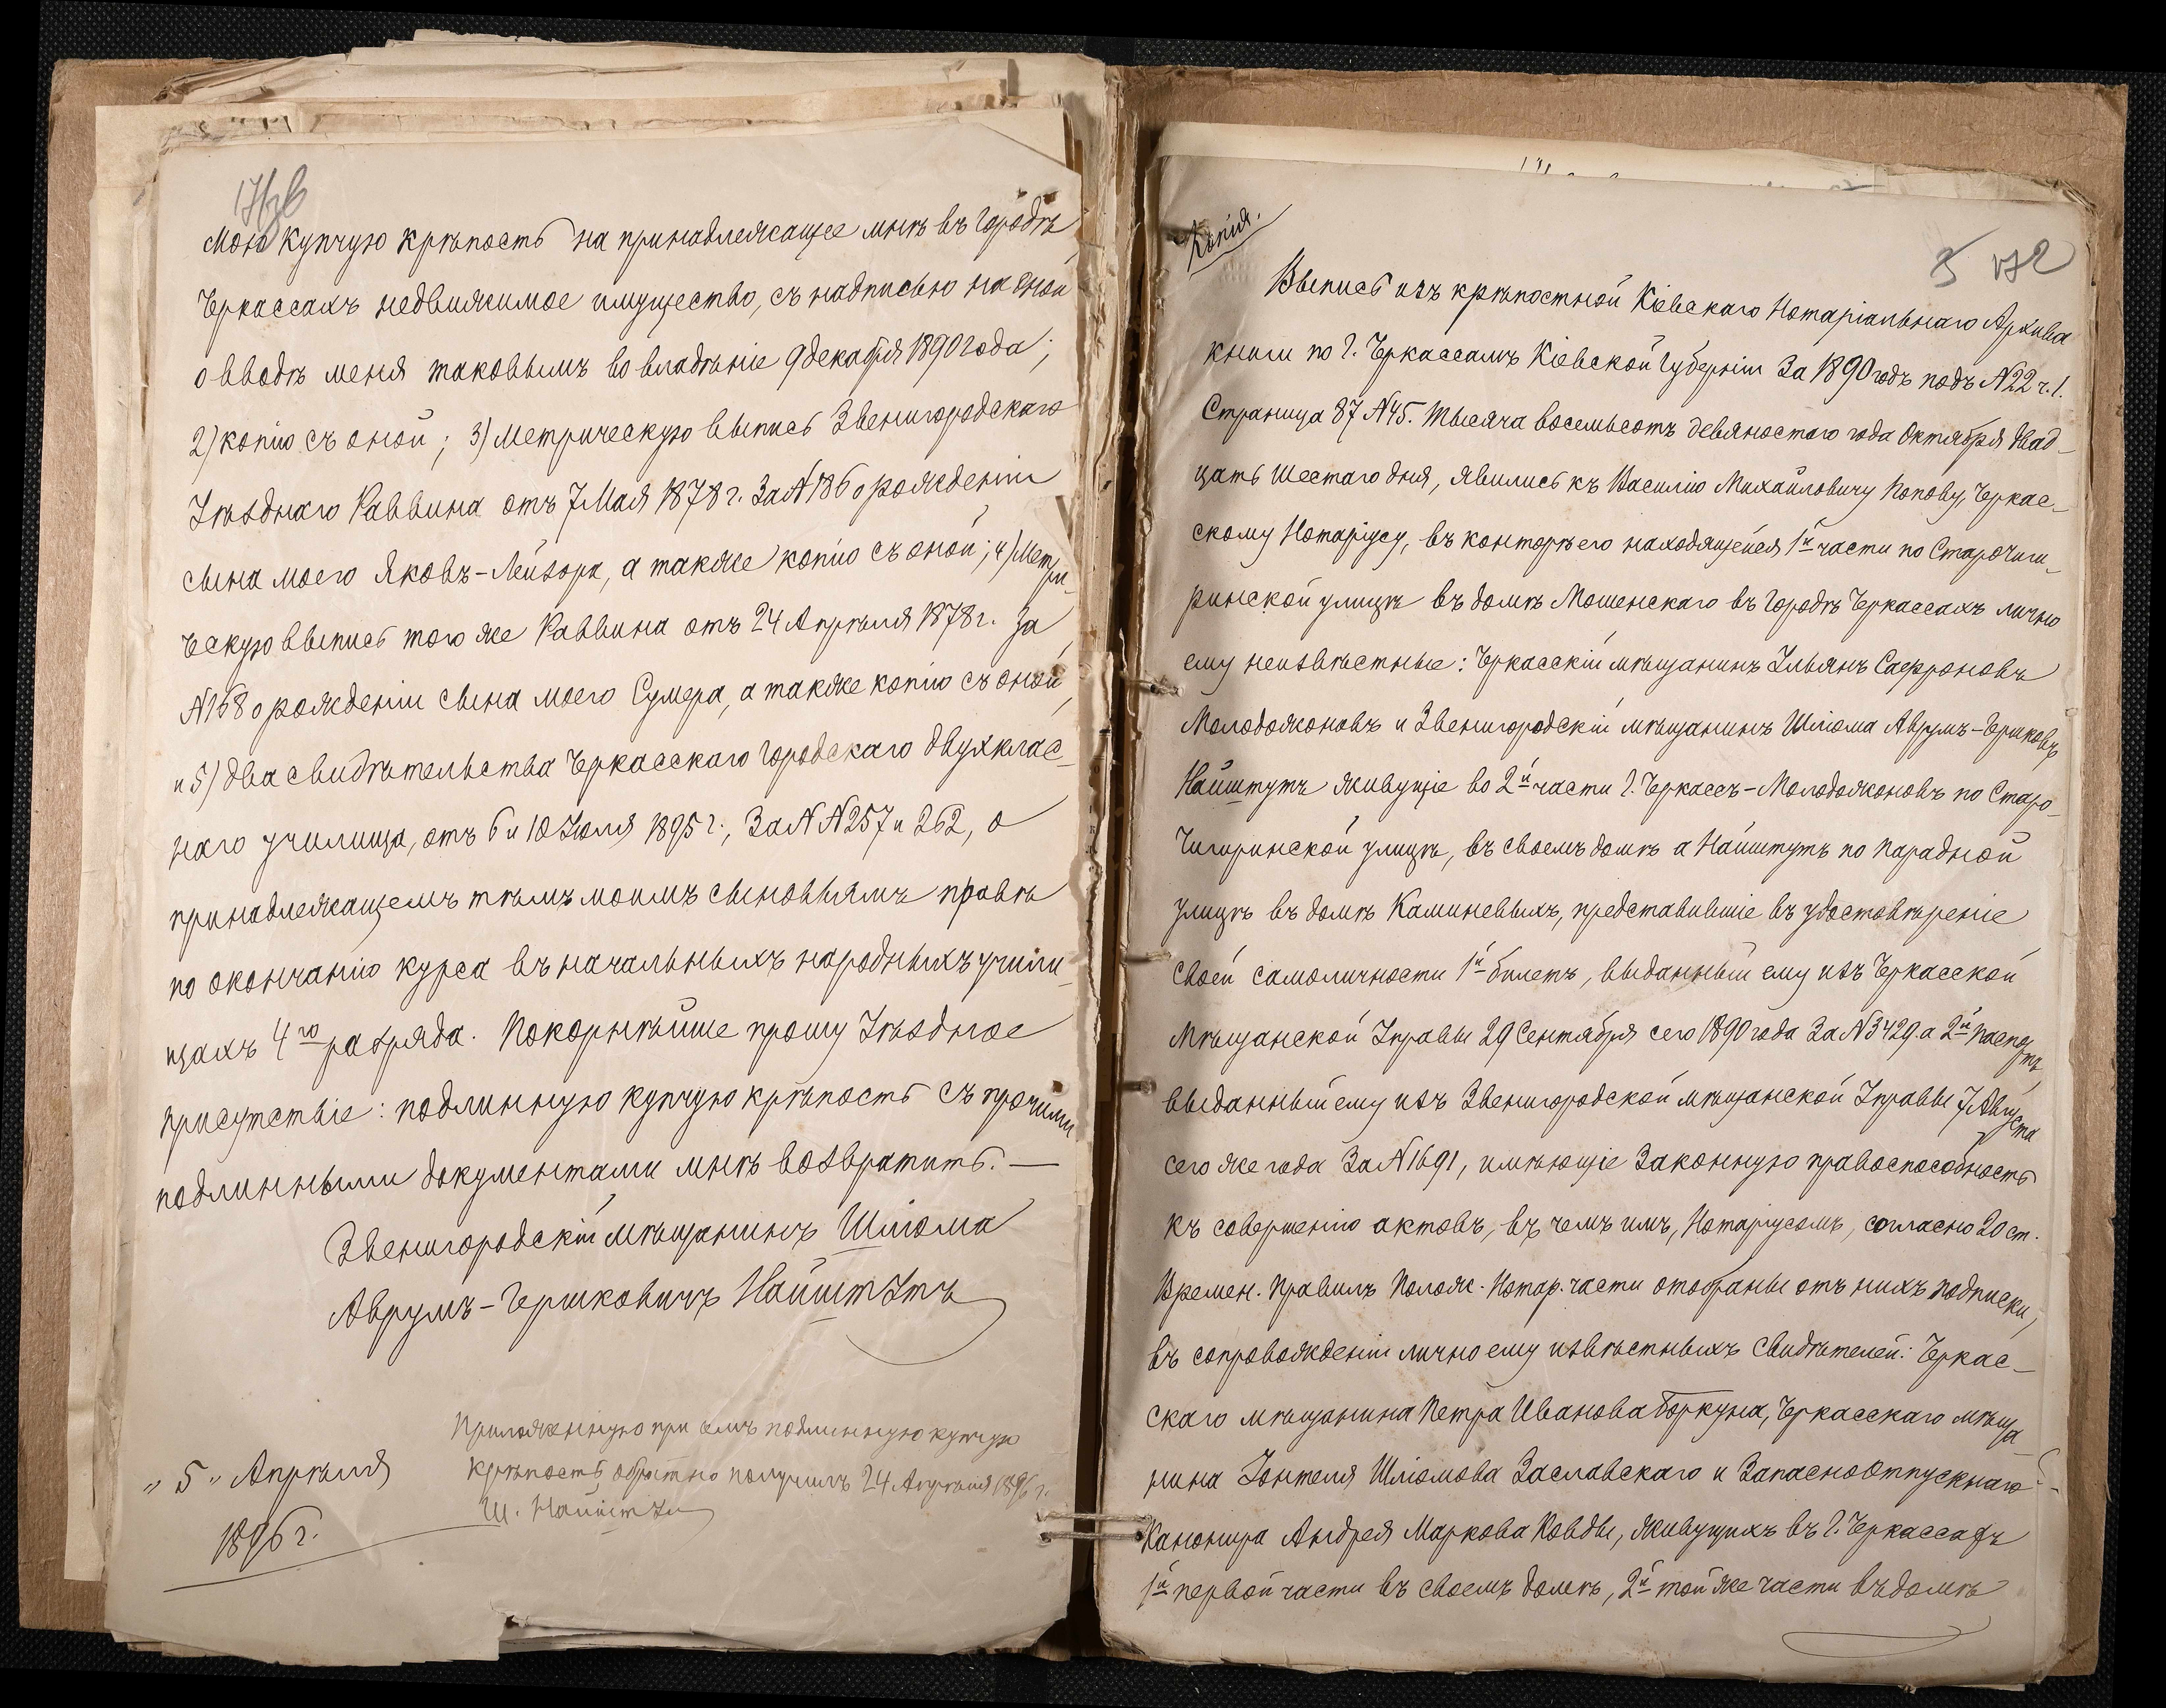 мою купчую крѣпость на принадлежащее мнѣ въ городѣ
Черкассахъ недвижимое имущество, съ надписью на оной
о вводѣ меня таковымъ во владѣніе 9 декабря 1890 года;
2) копію съ оной; 3) Метрическую выпись Звенигородскаго
Уѣзднаго Раввина отъ 7 Мая 1878 г. За № 186 о рожденіи
сына моего Яковъ-Лейзора, а также копію съ оной; 4) Метри-
ческую выпись того же Раввина отъ 24 Апрѣля 1878 г. За
№ 168 о рожденіи сына моего Сумера, а также копію съ оной,
и 5) два свидѣтельства Черкасскаго городскаго двухклас-
наго училища, отъ 6 и 10 Іюля 1895 г., За № № 257 и 262, о
принадлежащемъ тѣмъ моимъ сыновьямъ правѣ
по окончанію курса въ начальныхъ народныхъ учили-
щахъ 4го разряда. Покорнѣйше прошу Уѣздное
присутствіе: подлинную купчую крѣпость съ прочими
подлинными документами мнѣ возвратить. —
Звенигородскій мѣщанинъ Шліома
Аврумъ-Гершковичъ Найштутъ
Приложенную при семъ подлинную купчую
крѣпость обратно получилъ 24 Апрѣля 1896 г.
Ш. Найштут
" 5 " Апрѣля
1896 г.
Копія.
172
Выпись изъ крѣпостной Кіевскаго Нотаріальнаго Архива
книги по г. Черкассамъ Кіевской Губерніи За 1890 годъ подъ № 22 ч. 1.
Страница 87 № 45. Тысяча восемьсотъ девяностаго года Октября двад-
цать шестаго дня, явились къ Василію Михайловичу Попову, Черкас-
скому Нотаріусу, въ конторѣ его находящейся 1й части по Старочиги-
ринской улицѣ въ домѣ Мошенскаго въ городѣ Черкассахъ лично
ему неизвѣстные: Черкасскій мѣщанинъ Ульянъ Сафроновъ
Молодожоновъ и Звенигородскій мѣщанинъ Шліома Аврумъ-Гершковъ
Найштутъ живущіе во 2й части г. Черкассъ - Молодожоновъ по Старо-
Чигиринской улицѣ, въ своемъ домѣ а Найштутъ по Парадной
улицѣ въ домѣ Каминевыхъ, представившіе въ удостовѣреніе
своей самоличности 1й билетъ, выданный ему изъ Черкасской
Мѣщанской Управы 29 Сентября сего 1890 года За № 3429. а 2й паспортъ,
выданный ему изъ Звенигородской мѣщанской Управы 7 Августа
сего же года За № 1691, имѣющіе Законную правоспособность
къ совершенію актовъ, въ чемъ имъ, Нотаріусомъ, согласно 20 ст.
Времен. Правилъ Полож. Нотар. части отобраны отъ нихъ подписки,
въ сопровожденіи лично ему извѣстныхъ свидѣтелей: Черкас-
скаго мѣщанина Петра Иванова Боркуна, Черкасскаго мѣща-
нина Зонтеля Шліомова Заславскаго и Запасноотпускнаго
Канонира Андрея Маркова Ковды, живущихъ въ г. Черкассахъ
1й первой части въ своемъ домѣ, 2й той же части въ домѣ